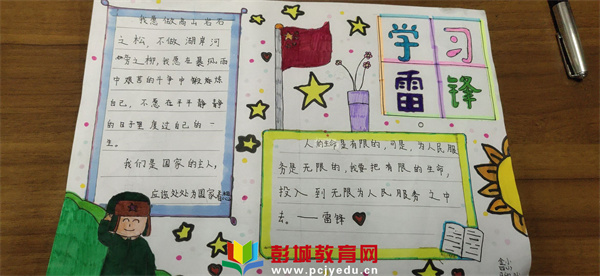 我愿做高山岩石
之松，不做湖岸河
旁之柳，我愿在暴风雨
中艰苦的斗争中锻炼
自己，不愿在平平静静
的日子里度过自己的一
生。
我们是国家的主人，
应该处处为国家着想
学习
雷锋
人的生命是有限的，可是，为人民服
务是无限的，我要把有限的生命，
投入到无限为人民服务之中
去。——雷锋
彭城教育网
www.pcjyedu.cn